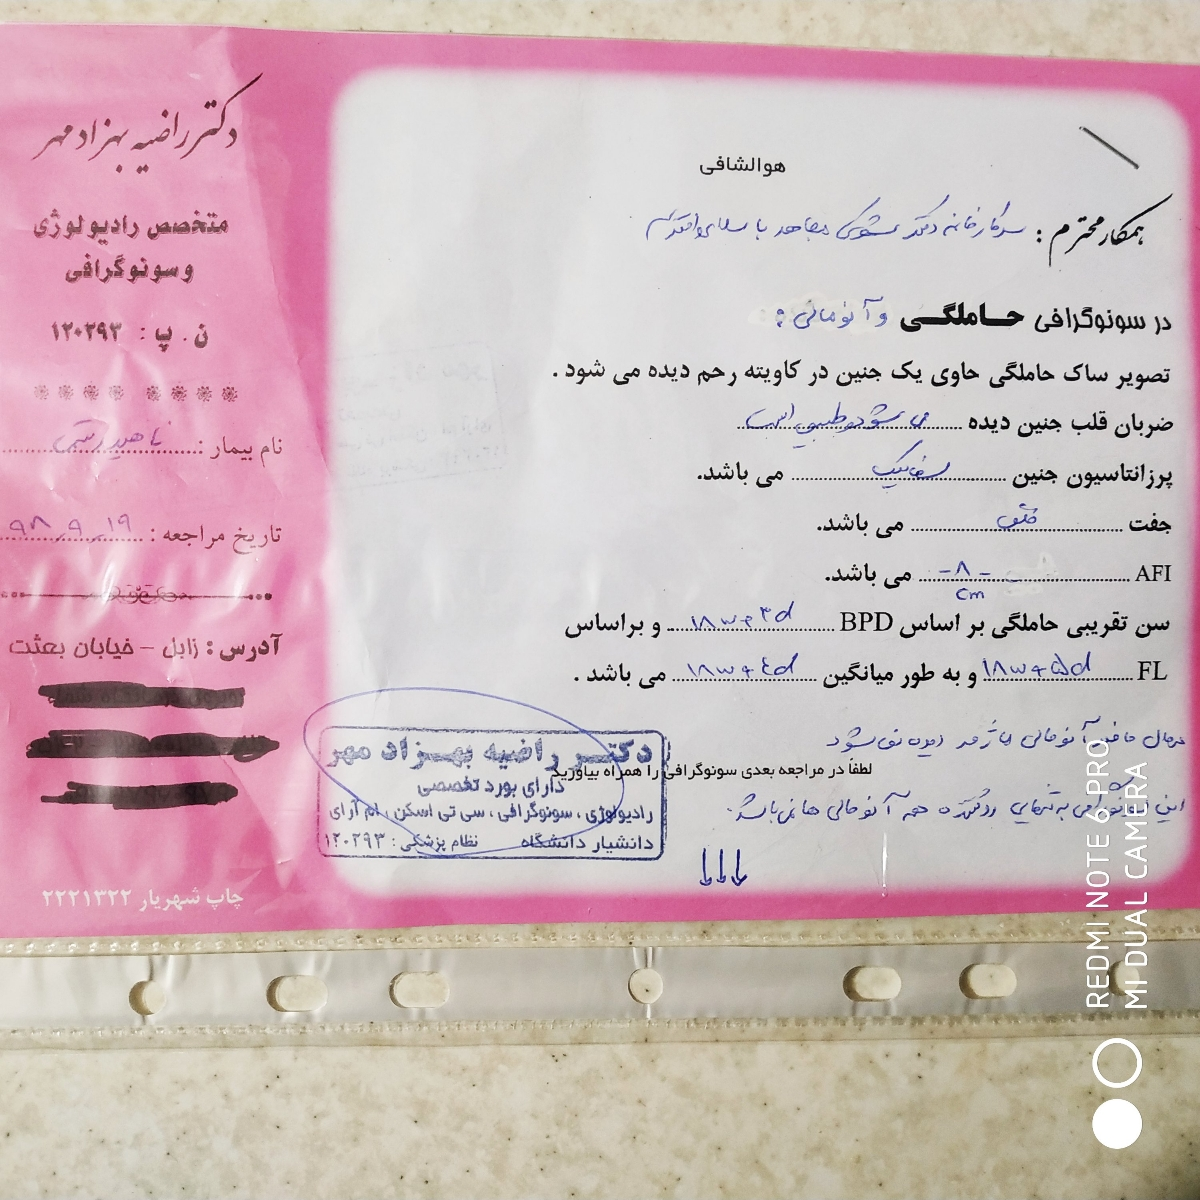 دکتر راضیه بهزاد مهر
متخصص رادیولوژی
و سونوگرافی
ن . پ : ۱۲۰۲۹۳
نام بیمار :
تاریخ مراجعه : ۹۸_۹_۱۹
آدرس : زابل - خیابان بعثت
چاپ شهریار ۲۲۲۱۳۲۲
هوالشافی
همکار محترم : سرکار خانم دکتر مجاهد با سلام و احترام
در سونوگرافی حاملگی و آنومالی :
تصویر ساک حاملگی حاوی یک جنین در کاویته رحم دیده می شود .
ضربان قلب جنین دیده می شود و طبیعی است
پرزانتاسیون جنین سفالیک می باشد.
جفت خلفی می باشد.
AFI -۸- cm می باشد.
سن تقریبی حاملگی بر اساس BPD ۱۸w+۳d و براساس
FL ۱۸w+۵d و به طور میانگین ۱۸w+٤d می باشد .
آنومالی ماژور دیده نمی شود
لطفا در مراجعه بعدی سونوگرافی را همراه بیاورید
این سونوگرافی به تنهایی رد کننده همه آنومالی ها نمی باشد.
دکتر راضیه بهزاد مهر
دارای بورد تخصصی
رادیولوژی ، سونوگرافی ، سی تی اسکن ، ام آر آی
دانشیار دانشگاه نظام پزشکی : ۱۲۰۲۹۳
REDMI NOTE 6 PRO
MI DUAL CAMERA